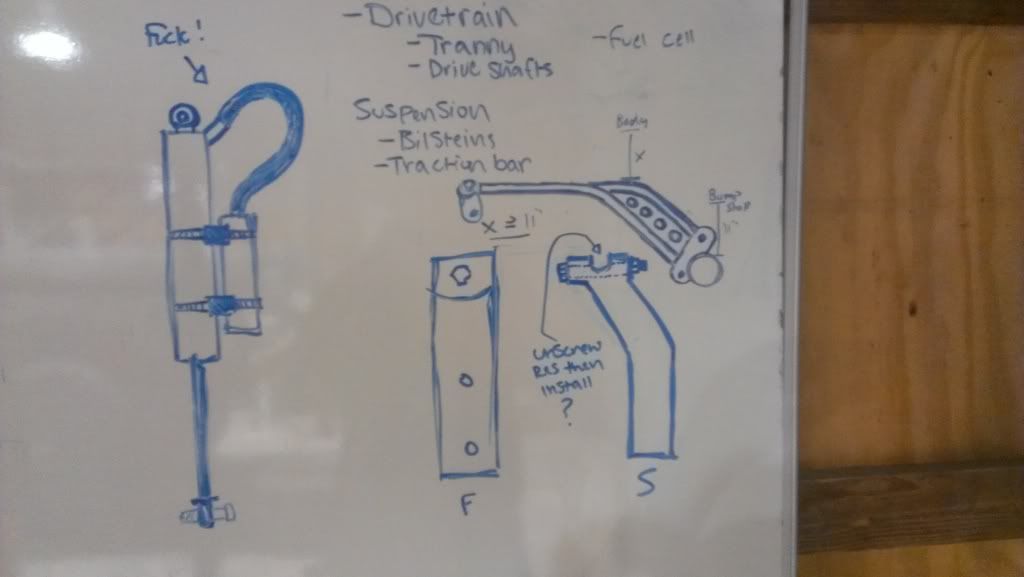 Fuck!
- Drivetrain
- Tranny
- Drive shafts
- Fuel cell
Suspension
- Bilsteins
- Traction bar
Body
x
Bump
Stop
11"
x ≥ 11"
unscrew
Res then
install
?
F
S